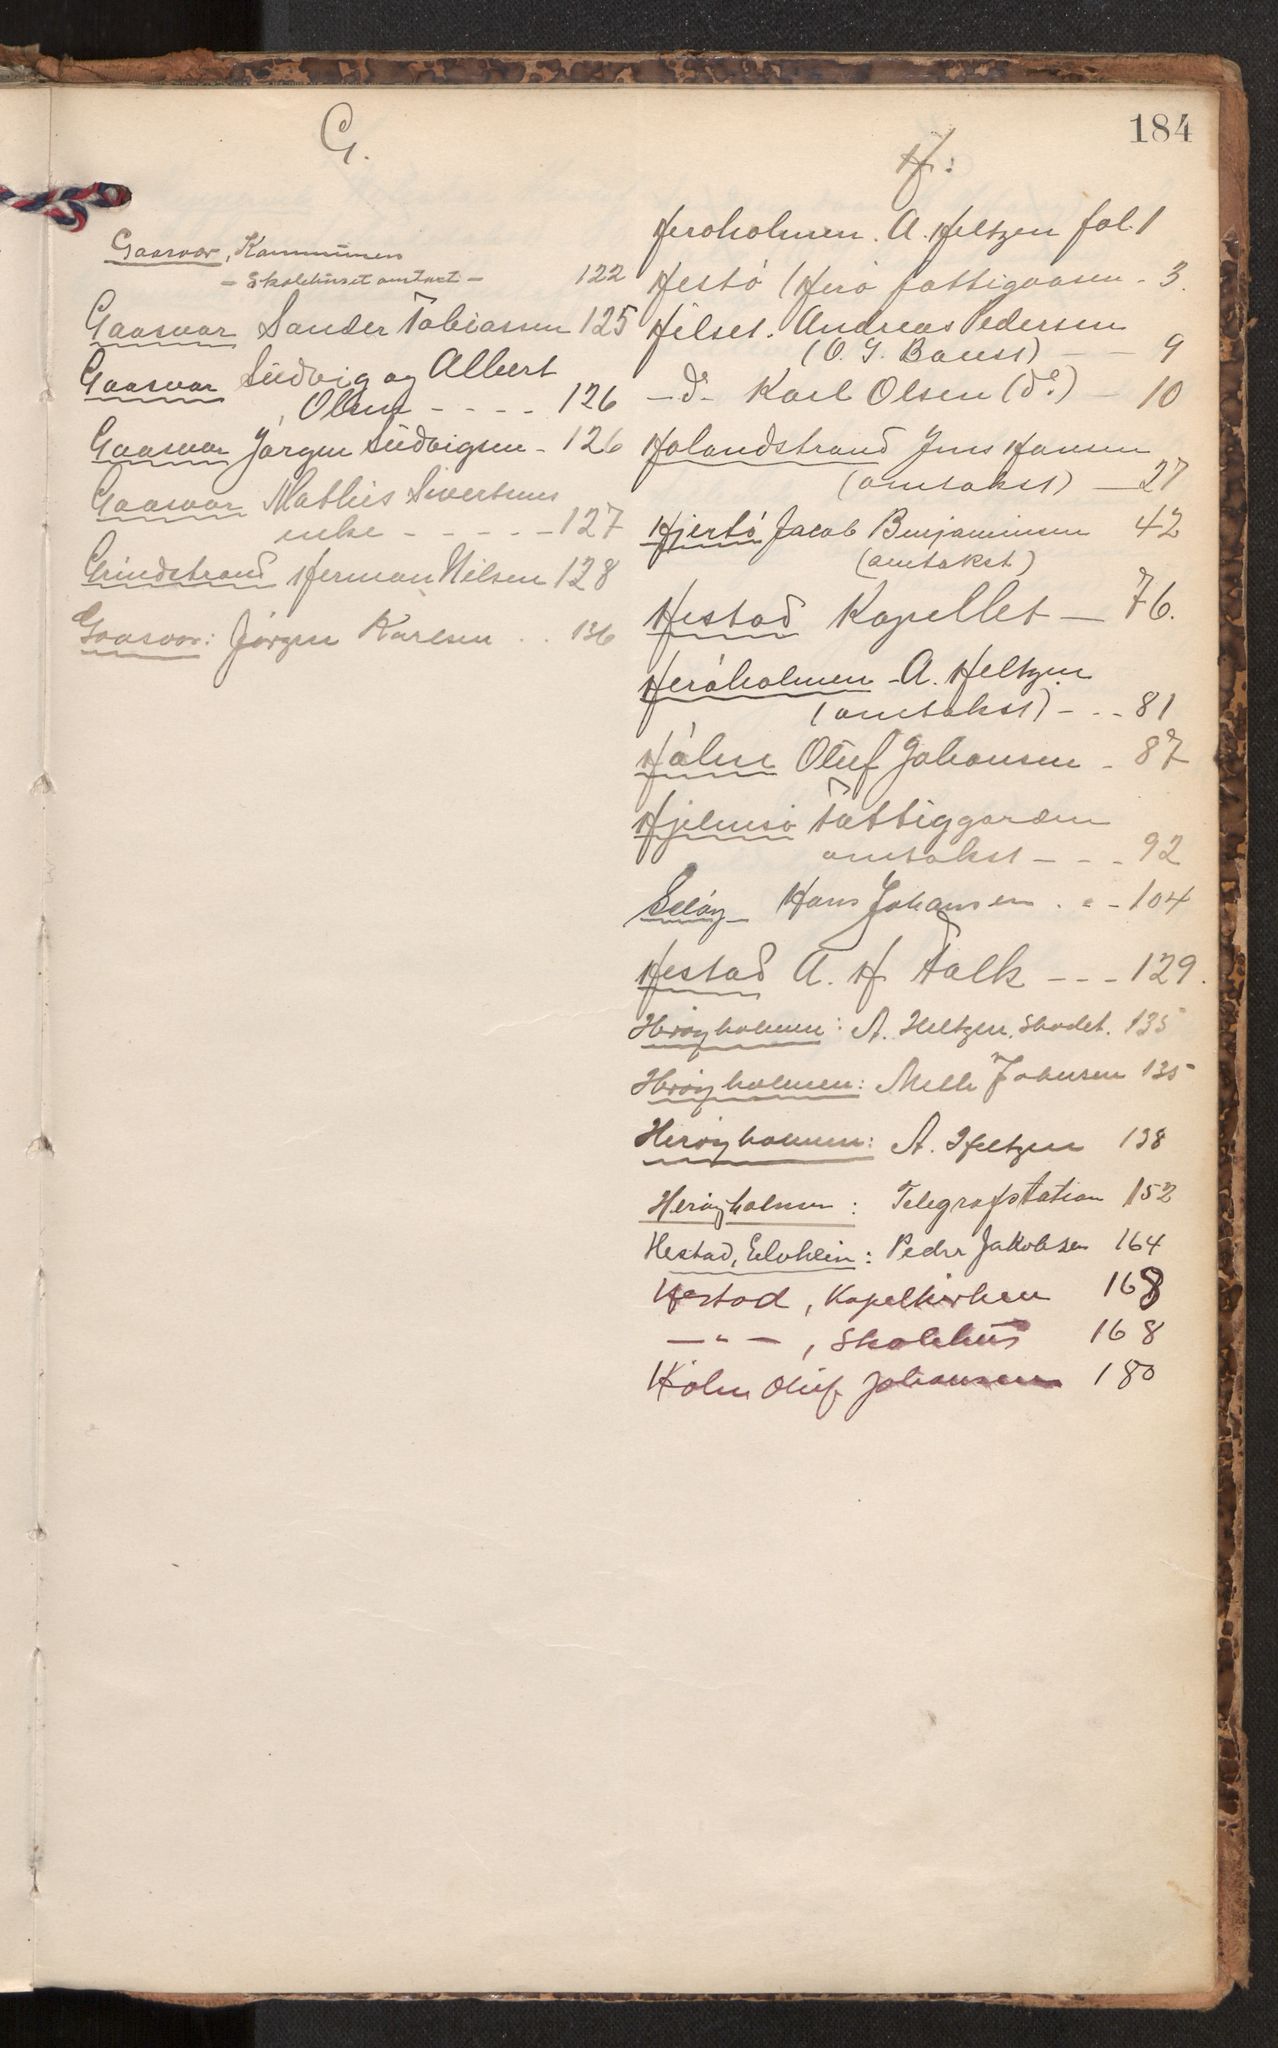 184
G.
Gaasvær, Kommunen
- Skolehuset omtaxt - 122
Gaasvær Sander Tobiassen 125
Gaasvær Ludvig og Albert
Olsen - - - - 126
Gaasvær Jørgen Ludvigsen - 126
Gaasvær Mathis Sivertsens
enke - - - - - 127
Grindstrand Herman Nilsen 128
Gaasvær: Jørgen Karlsen . . 136
H:
Herøholmen. A. Heltzen fol. 1
Hestø (Herø fattigvæsen - 3.
Hilset. Andreas Pedersen
(O. J. Bauss) - - 9
- do - Karl Olsen (do.) - 10
Halandstrand Jens Hansen
(omtakst) - 27
Hjertø Jacob Benjaminsen 42
(omtakst)
Hestad Kapellet - 76.
Herøholmen - A. Heltzen
(omtakst) - - - 81
Hólm Oluf Johansen - 87
Hjelmsø Fattiggarden
omtakst - - - 92
Seløy - Hans Johansen . - - 104
Hestad A. H. Falk - - - 129.
Herøyholmen: A. Heltzen, 135
Herøyholmen: Milli Johnsen 135
Herøyholmen: A. Heltzen 138
Herøyholmen: Telegrafstation 152
Hestad, : Peder Jakobsen 164
Hestad, Kapelkirken 168
- " - , Skolehus 168
Holm Oluf Johansen 180